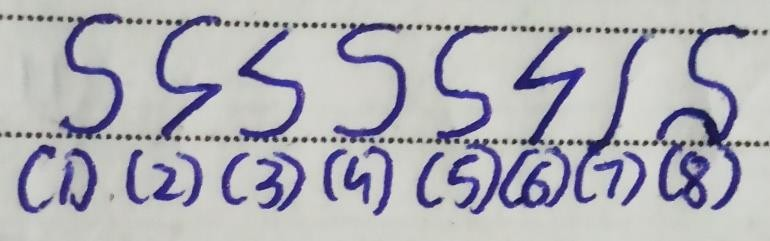 S S S S S S S S
(1) (2) (3) (4) (5) (6) (7) (8)